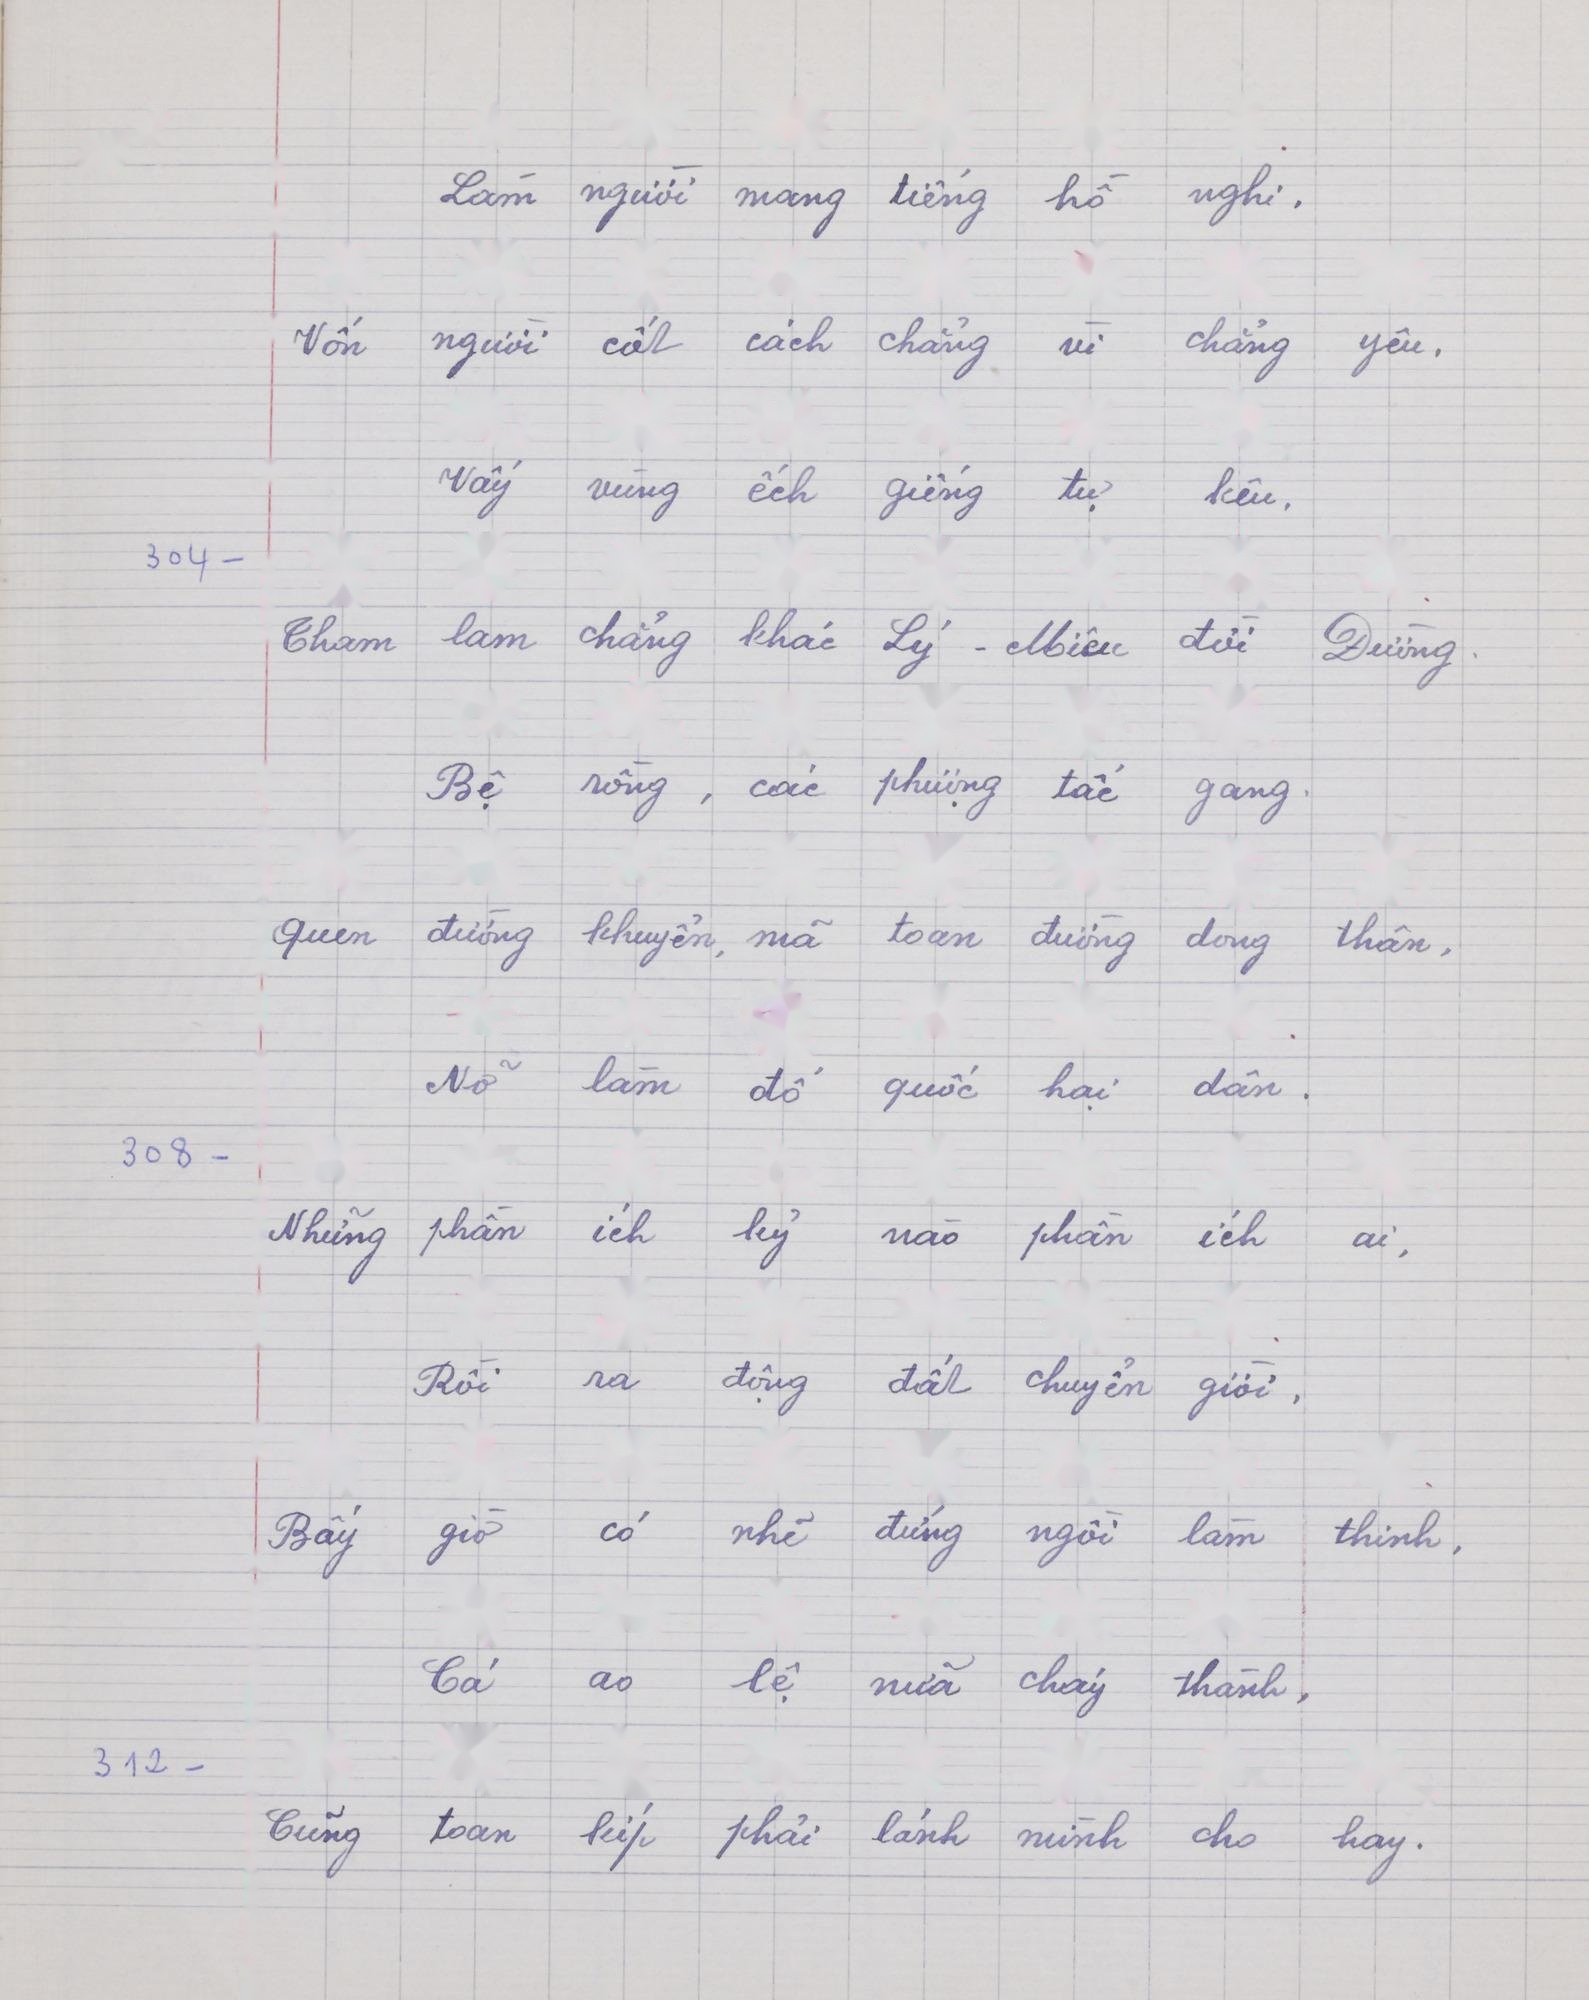 Làm người mang tiếng hồ nghi.
Vốn người cốt cách chẳng vì chẳng yêu.
Vẫy vùng ếch giếng tự kêu.
304 -
Tham lam chẳng khác Lý - Miêu đời Đường.
Bệ rồng, các phượng tấc gang.
Quen đường khuyển, mã toan đường dong thân.
Nỡ làm đố quốc hại dân.
308 -
Những phần ích kỷ nào phần ích ai,
Rồi ra động đất chuyển giời,
Bấy giờ có nhẽ đứng ngồi làm thinh.
Cá ao lệ nữa cháy thành,
312 -
Cũng toan kíp phải lánh mình cho hay.